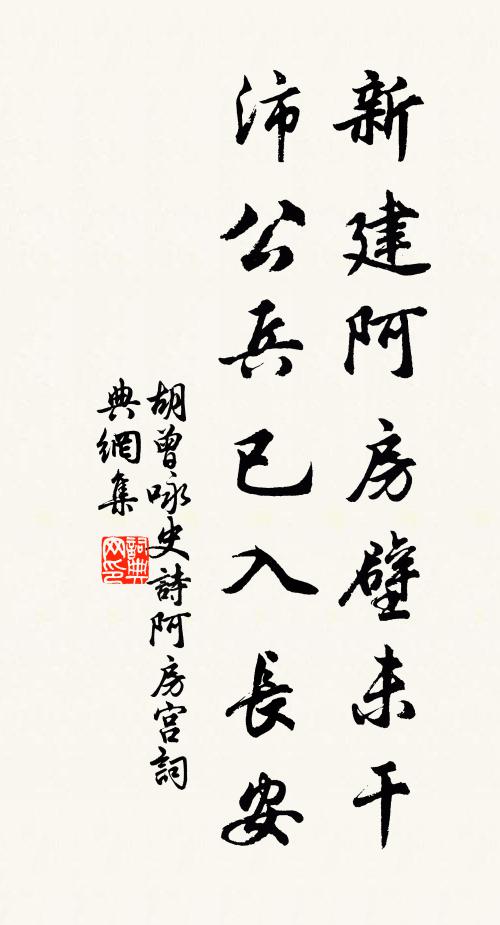 新建阿房壁未干
沛公兵已入長安
胡曾咏史詩阿房宮詞
典網集
詞典
网印